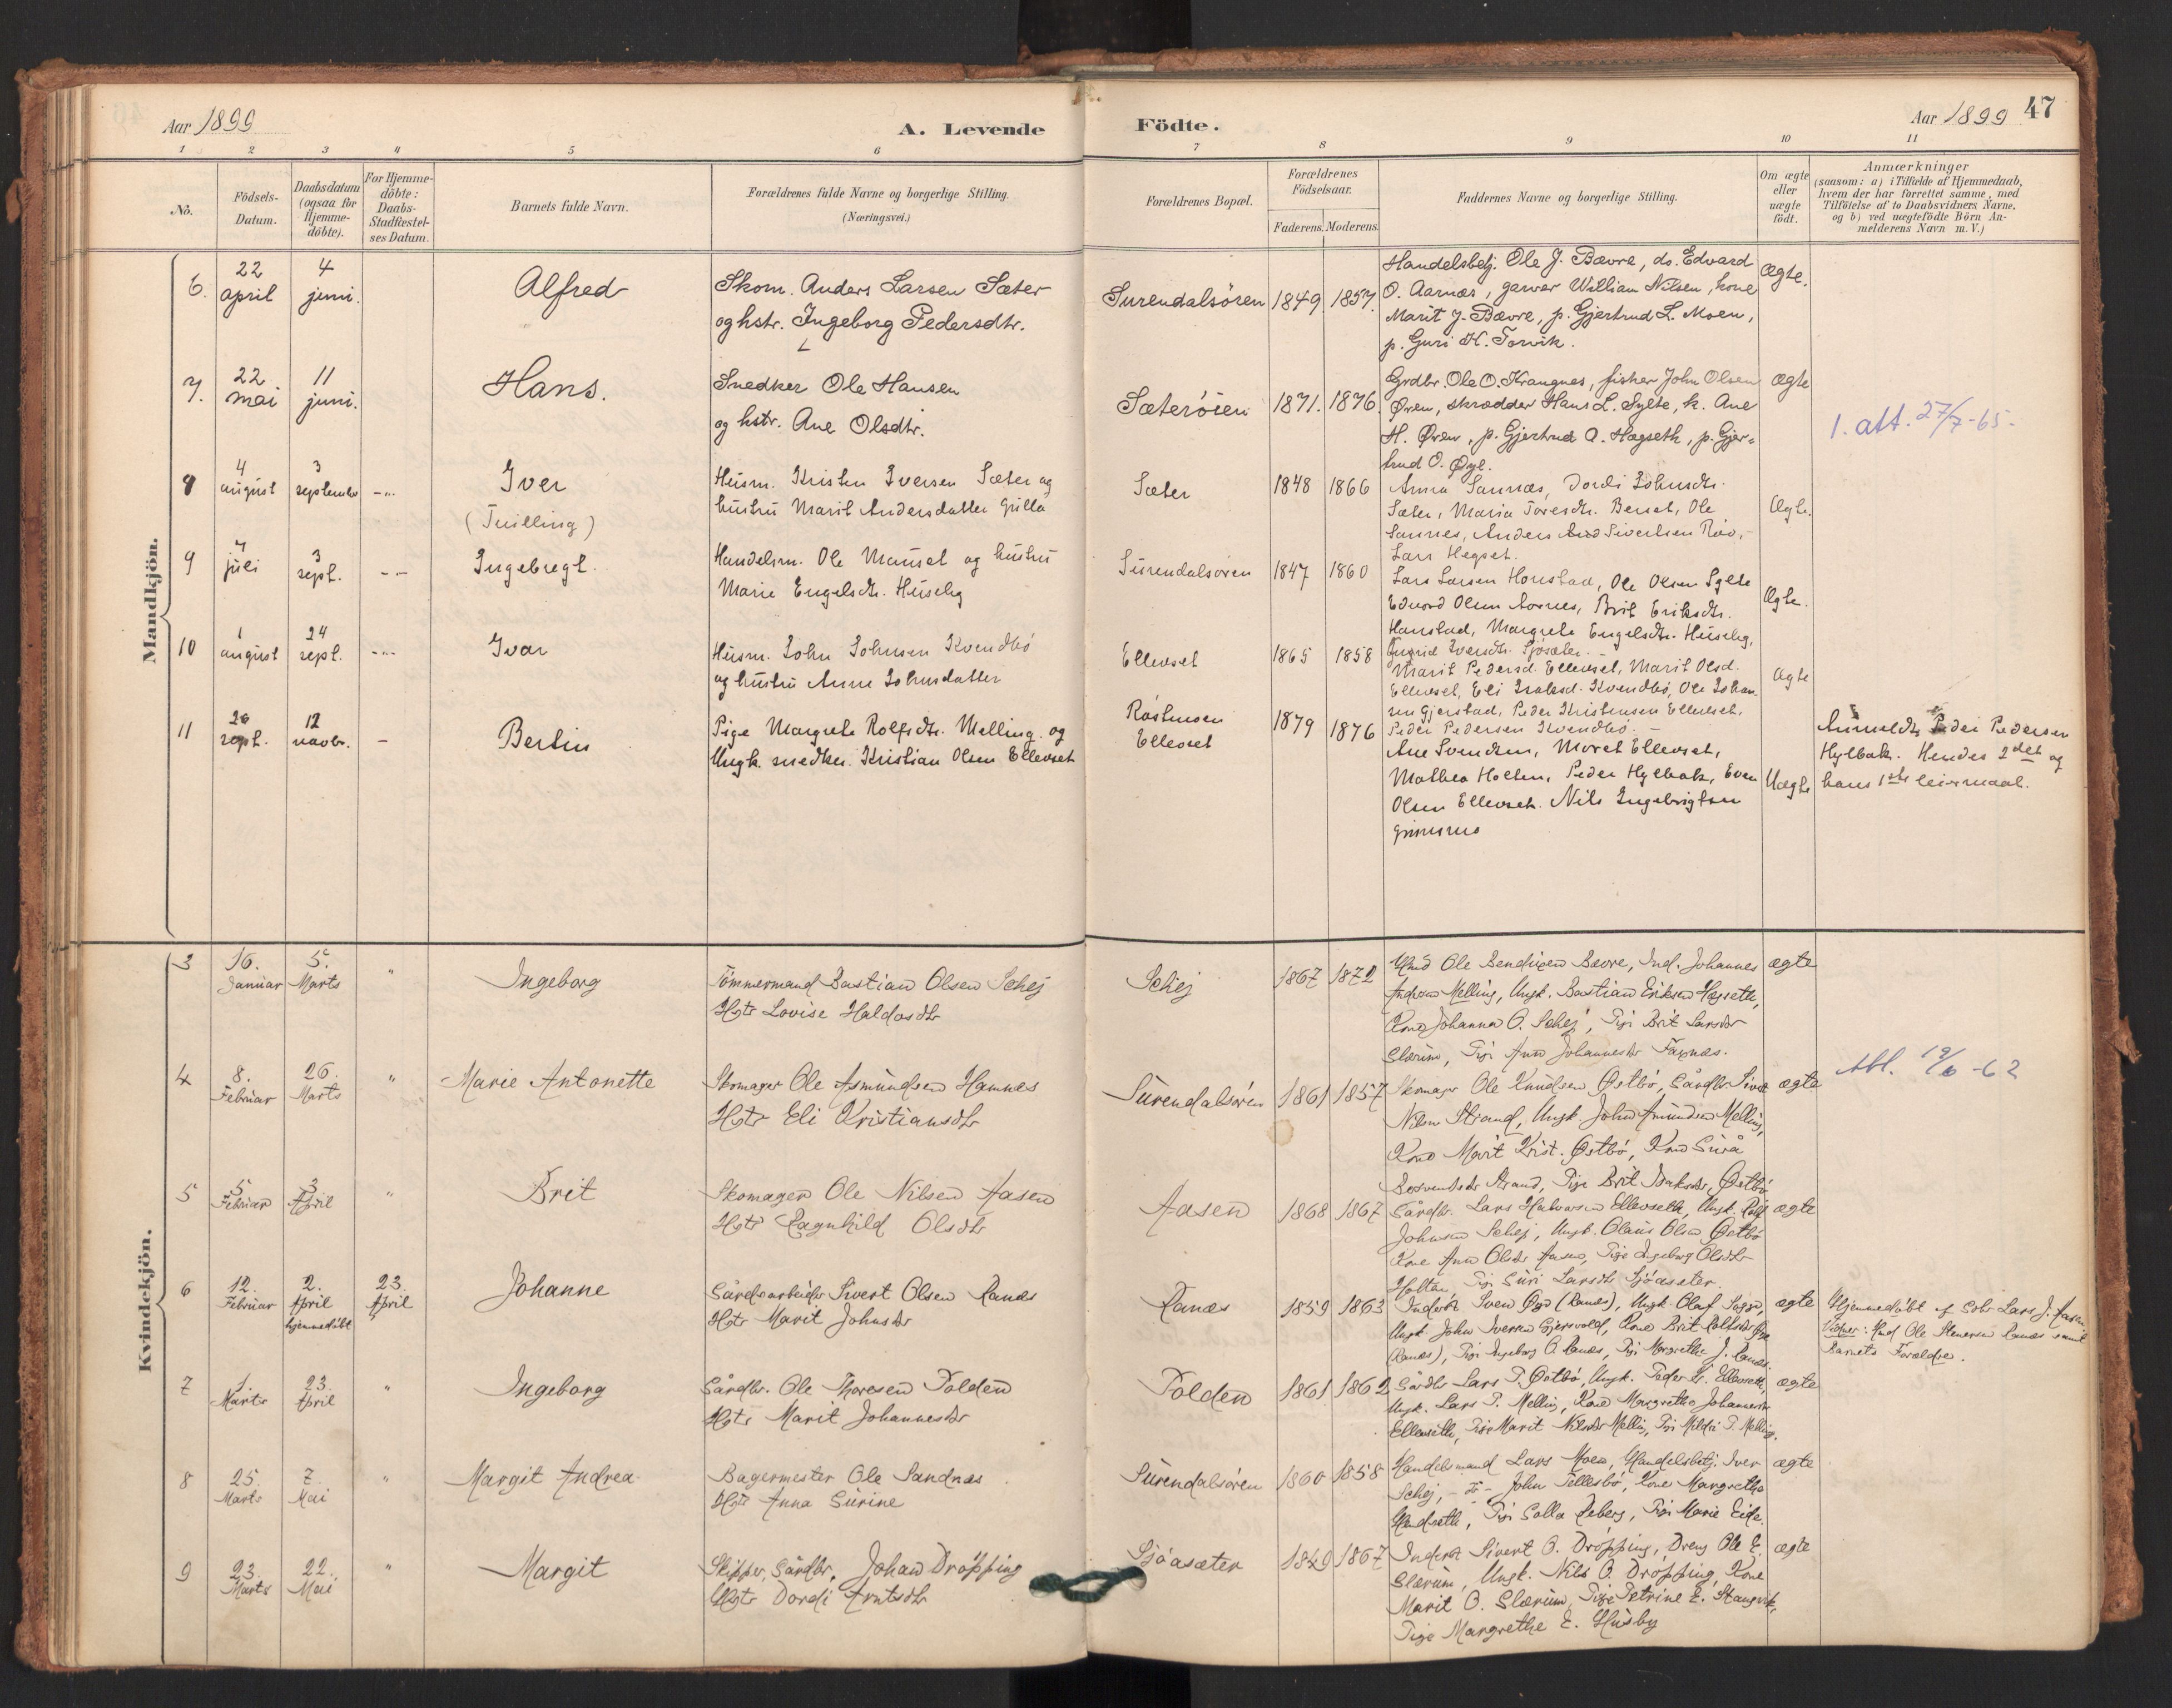 Aar 1899
A. Levende
Födte.
Aar 1899 47
1 2 3 4 5 6 7 8 9 10 11
No.
Födsels-
Datum.
Daabsdatum
(ogsaa for
Hjemme-
döbte).
For Hjemme-
döbte:
Daabs-
Stadfæstel-
ses Datum.
Barnets fulde Navn.
Forældrenes fulde Navne og borgerlige Stilling.
(Næringsvei.)
Forældrenes Bopæl.
Forældrenes
Födselsaar.
Faderens. Moderens.
Faddernes Navne og borgerlige Stilling.
Om ægte
eller
uægte
födt.
Anmærkninger
(saasom: a) i Tilfælde af Hjemmedaab,
hvem der har forrettet samme, med
Tilföielse af to Daabsvidners Navne,
og b) ved uægtefödte Börn An-
melderens Navn m. V.)
Mandkjön.
6.
22
april
4
juni.
Alfred
Skom. Anders Larsen Sæter
og hstr. Ingeborg Pedersdtr.
Surendalsören
1849. 1857.
Handelsbetj. Ole J. Bævre, do. Edvard
O. Aarnæs, garver William Nilsen, kone
Marit J. Bævre, p. Gjertrud L. Moen,
p. Guri H. Torvik.
Ægte.
7.
22
mai
11
juni.
Hans.
Snedker Ole Hansen
og hstr. Ane Olsdtr.
Sæterøien
1871. 1876.
Grdbr. Ole O. Krangnes, fisker John Olsen
Øren, skrædder Hans L. Sylte, k. Ane
H. Øren, p. Gjertrud O. Hægseth, p. Gjer-
trud O. Øye.
Ægte
1. att. 27/7-65.
8
4
august
3
september
Iver
(Tvilling)
Husm. Kristen Iversen Sæter og
hustru Marit Andersdatter Grilla
Sæter
1848 1866
Anna Sannæs, Dordi Johnsdtr.
Sæter, Maria Toresdtr. Berset, Ole
Sannes, Anders Sivertsen Röv,
Lars Hegset.
Ægte.
9
4
juli
3
sept.
Ingebregt.
Handelsm. Ole Mauset og hustru
Marie Engelsdtr. Huseby
Surendalsøren
1847 1860
Lars Larsen Honstad, Ole Olsen Sylte
Edvard Olsen Aarnes, Brit Eriksdtr.
Hanstad, Margrete Engelsdtr. Huseby,
Ingrid Iversdtr. Sjösæter.
Ægte.
10
1
august
24
sept.
Ivar
Husm. John Johnsen Kvendbö
og hustru Anne Johnsdatter
Ellevset
1865 1858
Marit Pedersd. Ellevset, Marit Olsd.
Ellevset, Eli Isaksd. Kvendbö, Ole Johan
sen Gjerstad, Peder Kristensen Ellevset,
Peder Pedersen Kvendbö.
Ægte
11
20
sept.
12
novbr.
Bertin
Pige Margrete Rolfsdtr. Melling og
Ungk. snedker. Kristian Olsen Ellevset
Ellevset
1879 1876
Ane Svendsen, Moret Ellevset,
Mathea Holten, Peder Hylbak, Even
Olsen Ellevset. Nils Ingebrigtsen
Uægte
Anmeldt Peder Pedersen
Hylbak. Hendes 2det og
hans 1ste leiermaal.
Kvindekjön.
3
16.
Januar
5.
Marts
"
Ingeborg
Tömmermand Bastian Olsen Schej
Hstr Lovise Haldosdtr
Schej
1867 1872
Ole Bendixen Bævre, Ind. Johannes
Andreas Melling, Ungk. Bastian Eriksen Hægseth,
Kone Johanna O. Schej, Pige Brit Larsdtr
Glærum, Pige Ane Johannesdtr Faxnæs.
ægte
4
8.
Februar
26.
Marts
"
Marie Antonette
Skomager Ole Asmundsen Hamnes
Hstr Eli Kristiansdtr
Surendalsøren
1861 1857
Skomager Ole Knudsen Østbö, Gårdbr Sivert
Nilsen Strand, Ungk. John Amundsen Melling,
Kone Marit Krist. Østbö, Kone Guro
Strand, Pige Brit Isaksdtr. Østbö
ægte
Att. 19/6-62
5
5
Februar
3
April
"
Brit
Skomager Ole Nilsen Aasen
Hstr Ragnhild Olsdtr
Aasen
1868 1867
Gårdbr. Lars Halvorsen Ellevseth, Ungk. Rolf
Johnsen Schej, Ungk. Olaus Olsen Østbö
Kone Ane Olsdtr Aasen, Pige Ingeborg Olsdtr
Holten, Pige Guri Larsdtr Sjöasæter.
ægte
6
12.
Februar
2.
April
hjemmedöbt
23
April
Johanne
Gårdsarbeider Sivert Olsen Ranæs
Hstr Marit Johnsdtr
Ranæs
1859 1863
Inderst Sven Øye (Ranæs), Ungk. Olaf Sogge,
Ungk John Iversen Gjersvold, Kone Brit Rolfsdtr Øye
(Ranæs), Pige Ingeborg O. Ranæs, Pige Margrethe J. Ranæs.
ægte
Hjemmedöbt af Lars J. Aasen
Vidner: Ole Stenersen Ranæs samt
Barnets Forældre.
7
1.
Marts
23.
April
"
Ingeborg
Gårdbr. Ole Thoresen Polden
Hstr Marit Johannesdtr
Polden
1861 1862
Gårdbr Lars P. Østbö, Ungk. Peder K. Ellevseth,
Ungk. Lars P. Melling, Kone Margrethe Johannesdtr
Ellevseth, Pige Marit Nilsdtr Melling, Pige Mildri P. Melling.
ægte
8
25.
Marts
7.
Mai
"
Margit Andrea
Bagermester Ole Sandnæs
Hstr Anna Surine
Surendalsøren
1860 1858
Handelsmand Lars Moen, Handelsbetj. Iver
Schej, - do - John Tellesbö, Kone Margrethe
Pige Salla Reberg, Pige Marie Eide.
ægte
9
23.
Marts
22.
Mai
"
Margit
Skipper, Gårdbr. Johan Dröpping
Hstr Dordi Arntsdtr
Sjöasæter
1849 1867
Inderst Sivert O. Dröpping, Dreng Ole E.
Glærum, Ungk. Nils O. Dröpping, Kone
Marit O. Glærum, Pige Petrine E. Stangvik,
Pige Margrethe E. Husby
ægte